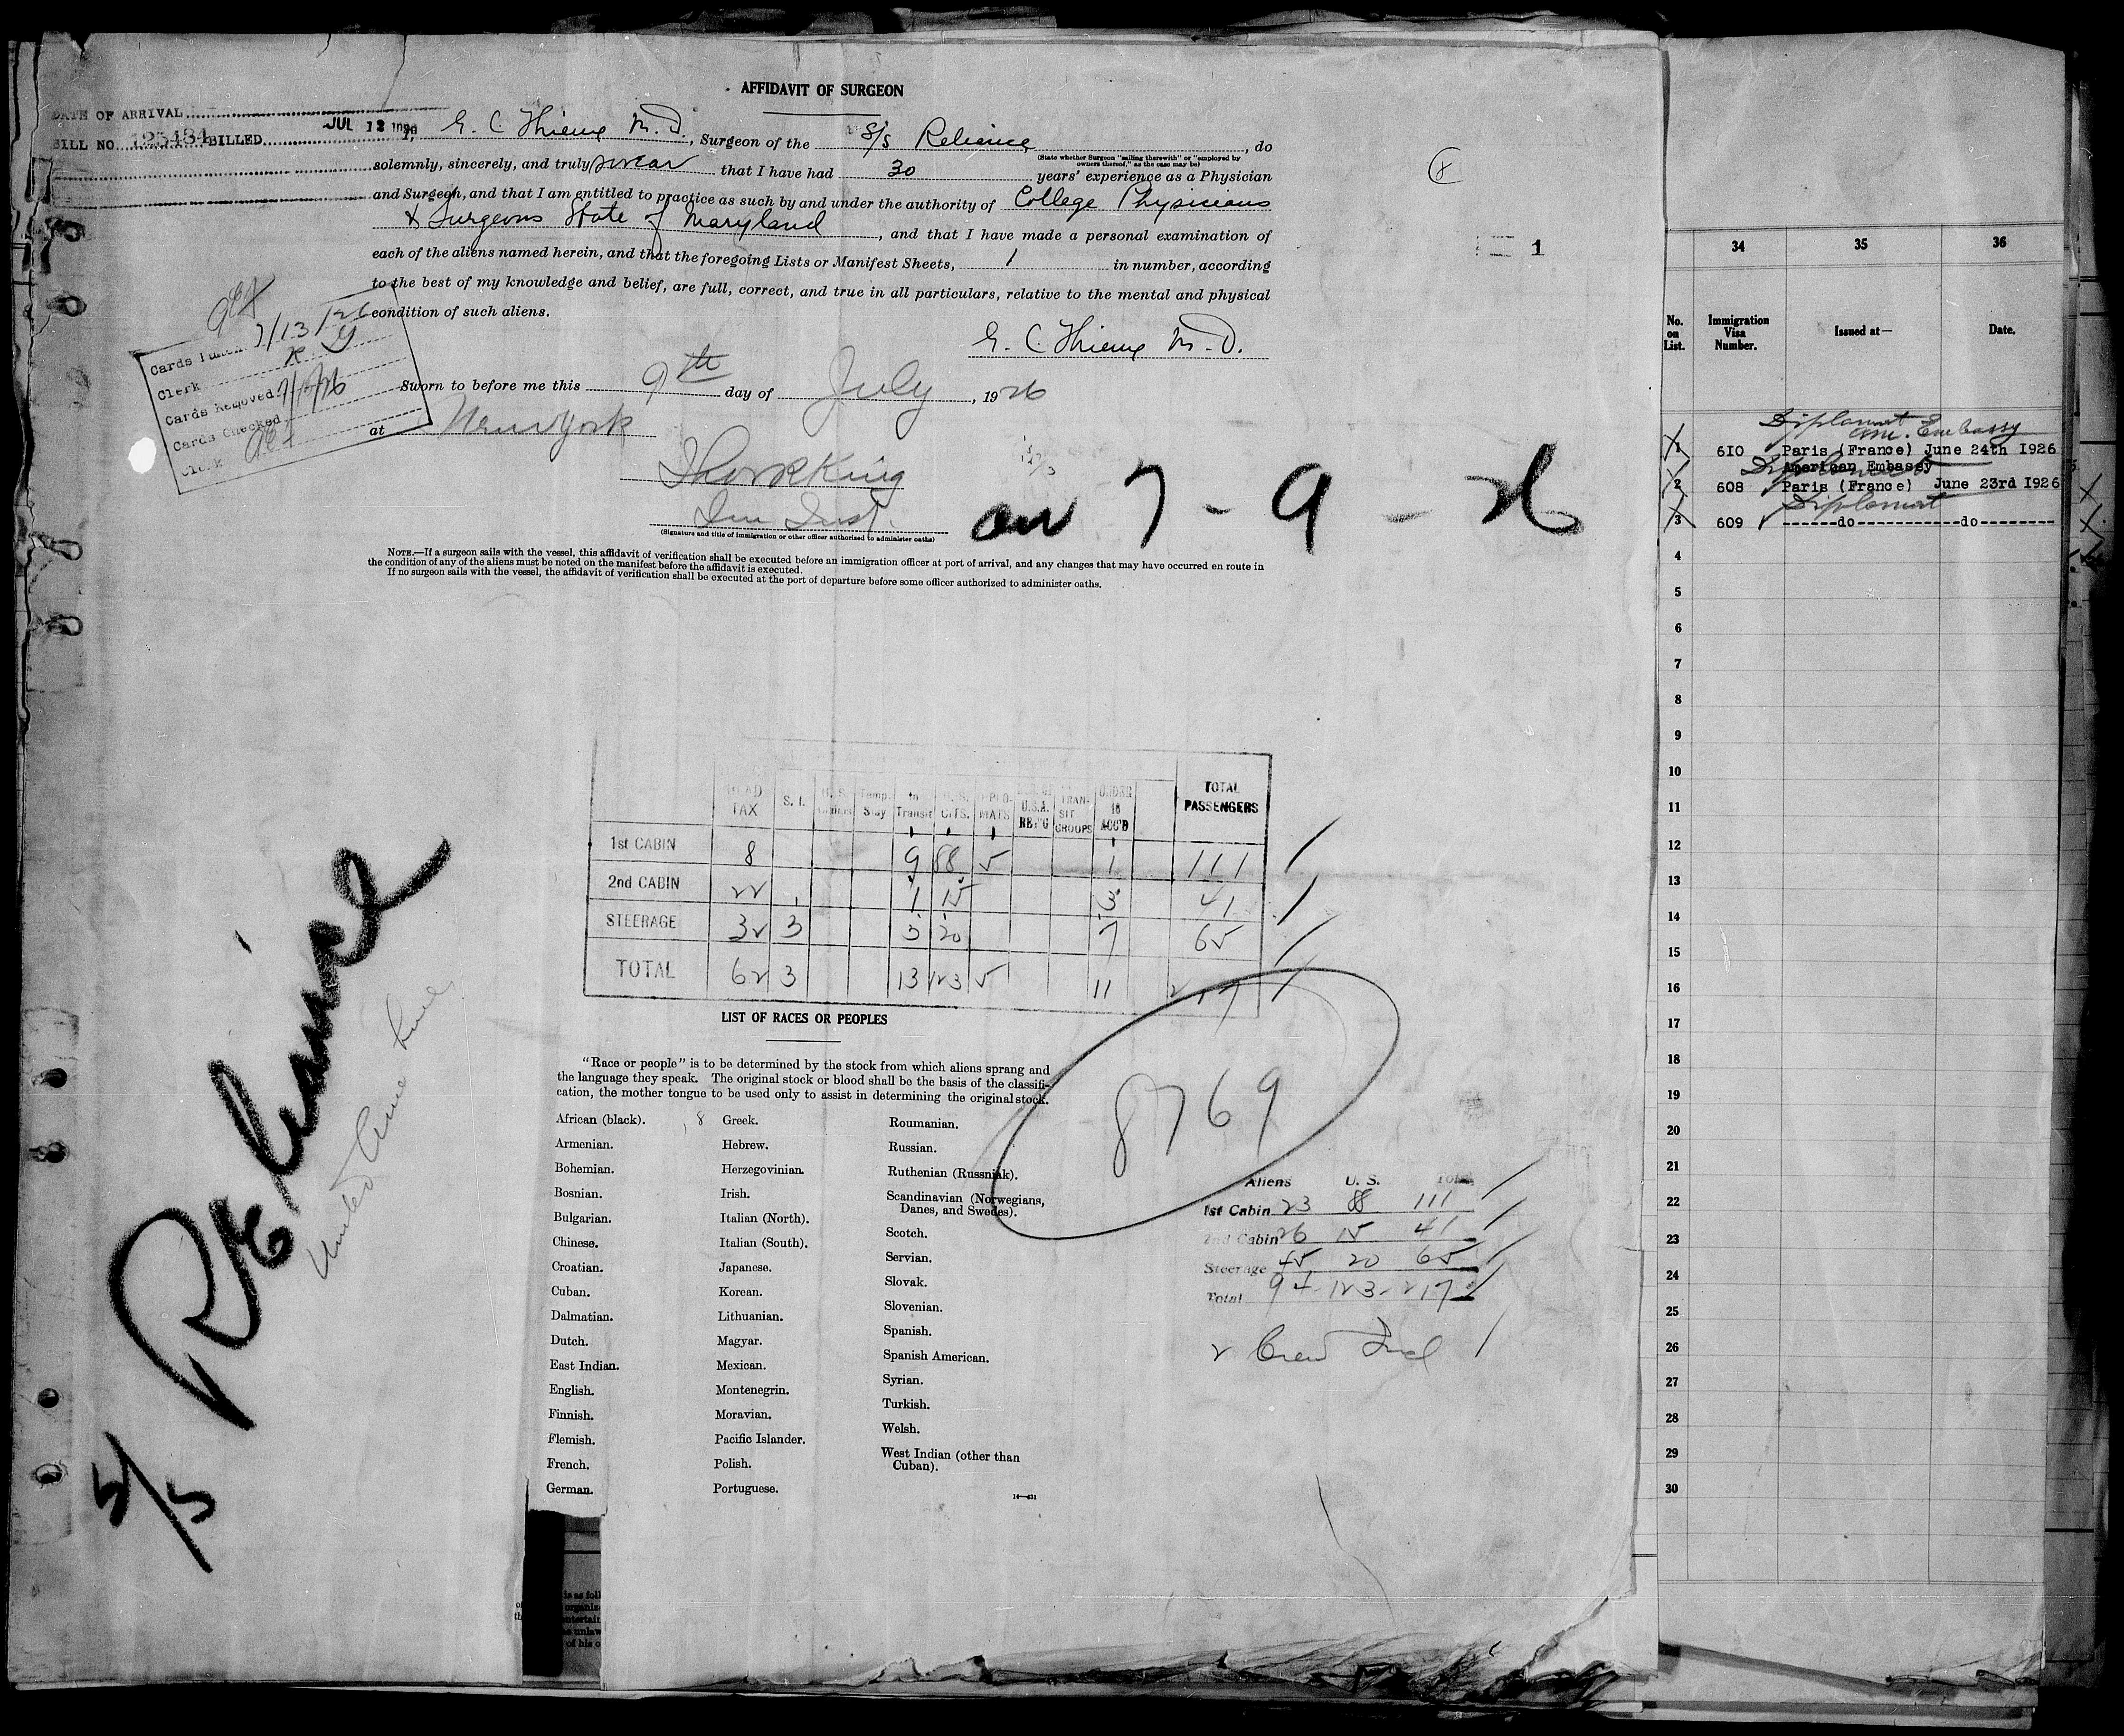 AFFIDAVIT OF SURGEON
DATE OF ARRIVAL
BILL NO. 125484 BILLED JUL 12
I, G. C. Thieme M.D., Surgeon of the S/S Reliance, do
(State whether Surgeon "sailing therewith" or "employed by owners thereof," as the case may be)
solemnly, sincerely, and truly swear that I have had 30 years' experience as a Physician
and Surgeon, and that I am entitled to practice as such by and under the authority of College Physicians
& Surgeons State of Maryland, and that I have made a personal examination of
each of the aliens named herein, and that the foregoing Lists or Manifest Sheets, 1 in number, according
to the best of my knowledge and belief, are full, correct, and true in all particulars, relative to the mental and physical
condition of such aliens.
G. C. Thieme M.D.
Cards 7/13/26
Clerk
Cards Removed
Cards Checked
Clerk
Sworn to before me this 9th day of July, 1926
at New York
Thor R King
Imm Inst.
(Signature and title of immigration or other officer authorized to administer oaths)
7 - 9 - 26
1
NOTE.—If a surgeon sails with the vessel, this affidavit of verification shall be executed before an immigration officer at port of arrival, and any changes that may have occurred en route in
the condition of any of the aliens must be noted on the manifest before the affidavit is executed.
If no surgeon sails with the vessel, the affidavit of verification shall be executed at the port of departure before some officer authorized to administer oaths.
HEAD TAX S. I. U. S. Temp. Stay In Transit U. S. CITS. DIPLOMATS U.S.A. RET'G TRANSIT GROUPS UNDER 16 ACC'D TOTAL PASSENGERS
1st CABIN 8 9 88 5 1 111
2nd CABIN 22 1 15 3 41
STEERAGE 32 3 3 20 7 65
TOTAL 62 3 13 123 5 11 217
LIST OF RACES OR PEOPLES
"Race or people" is to be determined by the stock from which aliens sprang and
the language they speak. The original stock or blood shall be the basis of the classifi-
cation, the mother tongue to be used only to assist in determining the original stock.
African (black).
Armenian.
Bohemian.
Bosnian.
Bulgarian.
Chinese.
Croatian.
Cuban.
Dalmatian.
Dutch.
East Indian.
English.
Finnish.
Flemish.
French.
German.
8
Greek.
Hebrew.
Herzegovinian.
Irish.
Italian (North).
Italian (South).
Japanese.
Korean.
Lithuanian.
Magyar.
Mexican.
Montenegrin.
Moravian.
Pacific Islander.
Polish.
Portuguese.
Roumanian.
Russian.
Ruthenian (Russniak).
Scandinavian (Norwegians,
Danes, and Swedes).
Scotch.
Servian.
Slovak.
Slovenian.
Spanish.
Spanish American.
Syrian.
Turkish.
Welsh.
West Indian (other than
Cuban).
14—431
8769
Aliens U. S. Total
1st Cabin 23 88 111
2nd Cabin 26 15 41
Steerage 45 20 65
Total 94 - 123 - 217
2 Crew Incl
Reliance
United Amer Line
5/5
34 35 36
No. on List. Immigration Visa Number. Issued at— Date.
Diplomat
Am. Embassy
1 610 Paris (France) June 24th 1926
American Embassy
2 608 Paris (France) June 23rd 1926
Diplomat
3 609 ------do------------do--------
4
5
6
7
8
9
10
11
12
13
14
15
16
17
18
19
20
21
22
23
24
25
26
27
28
29
30